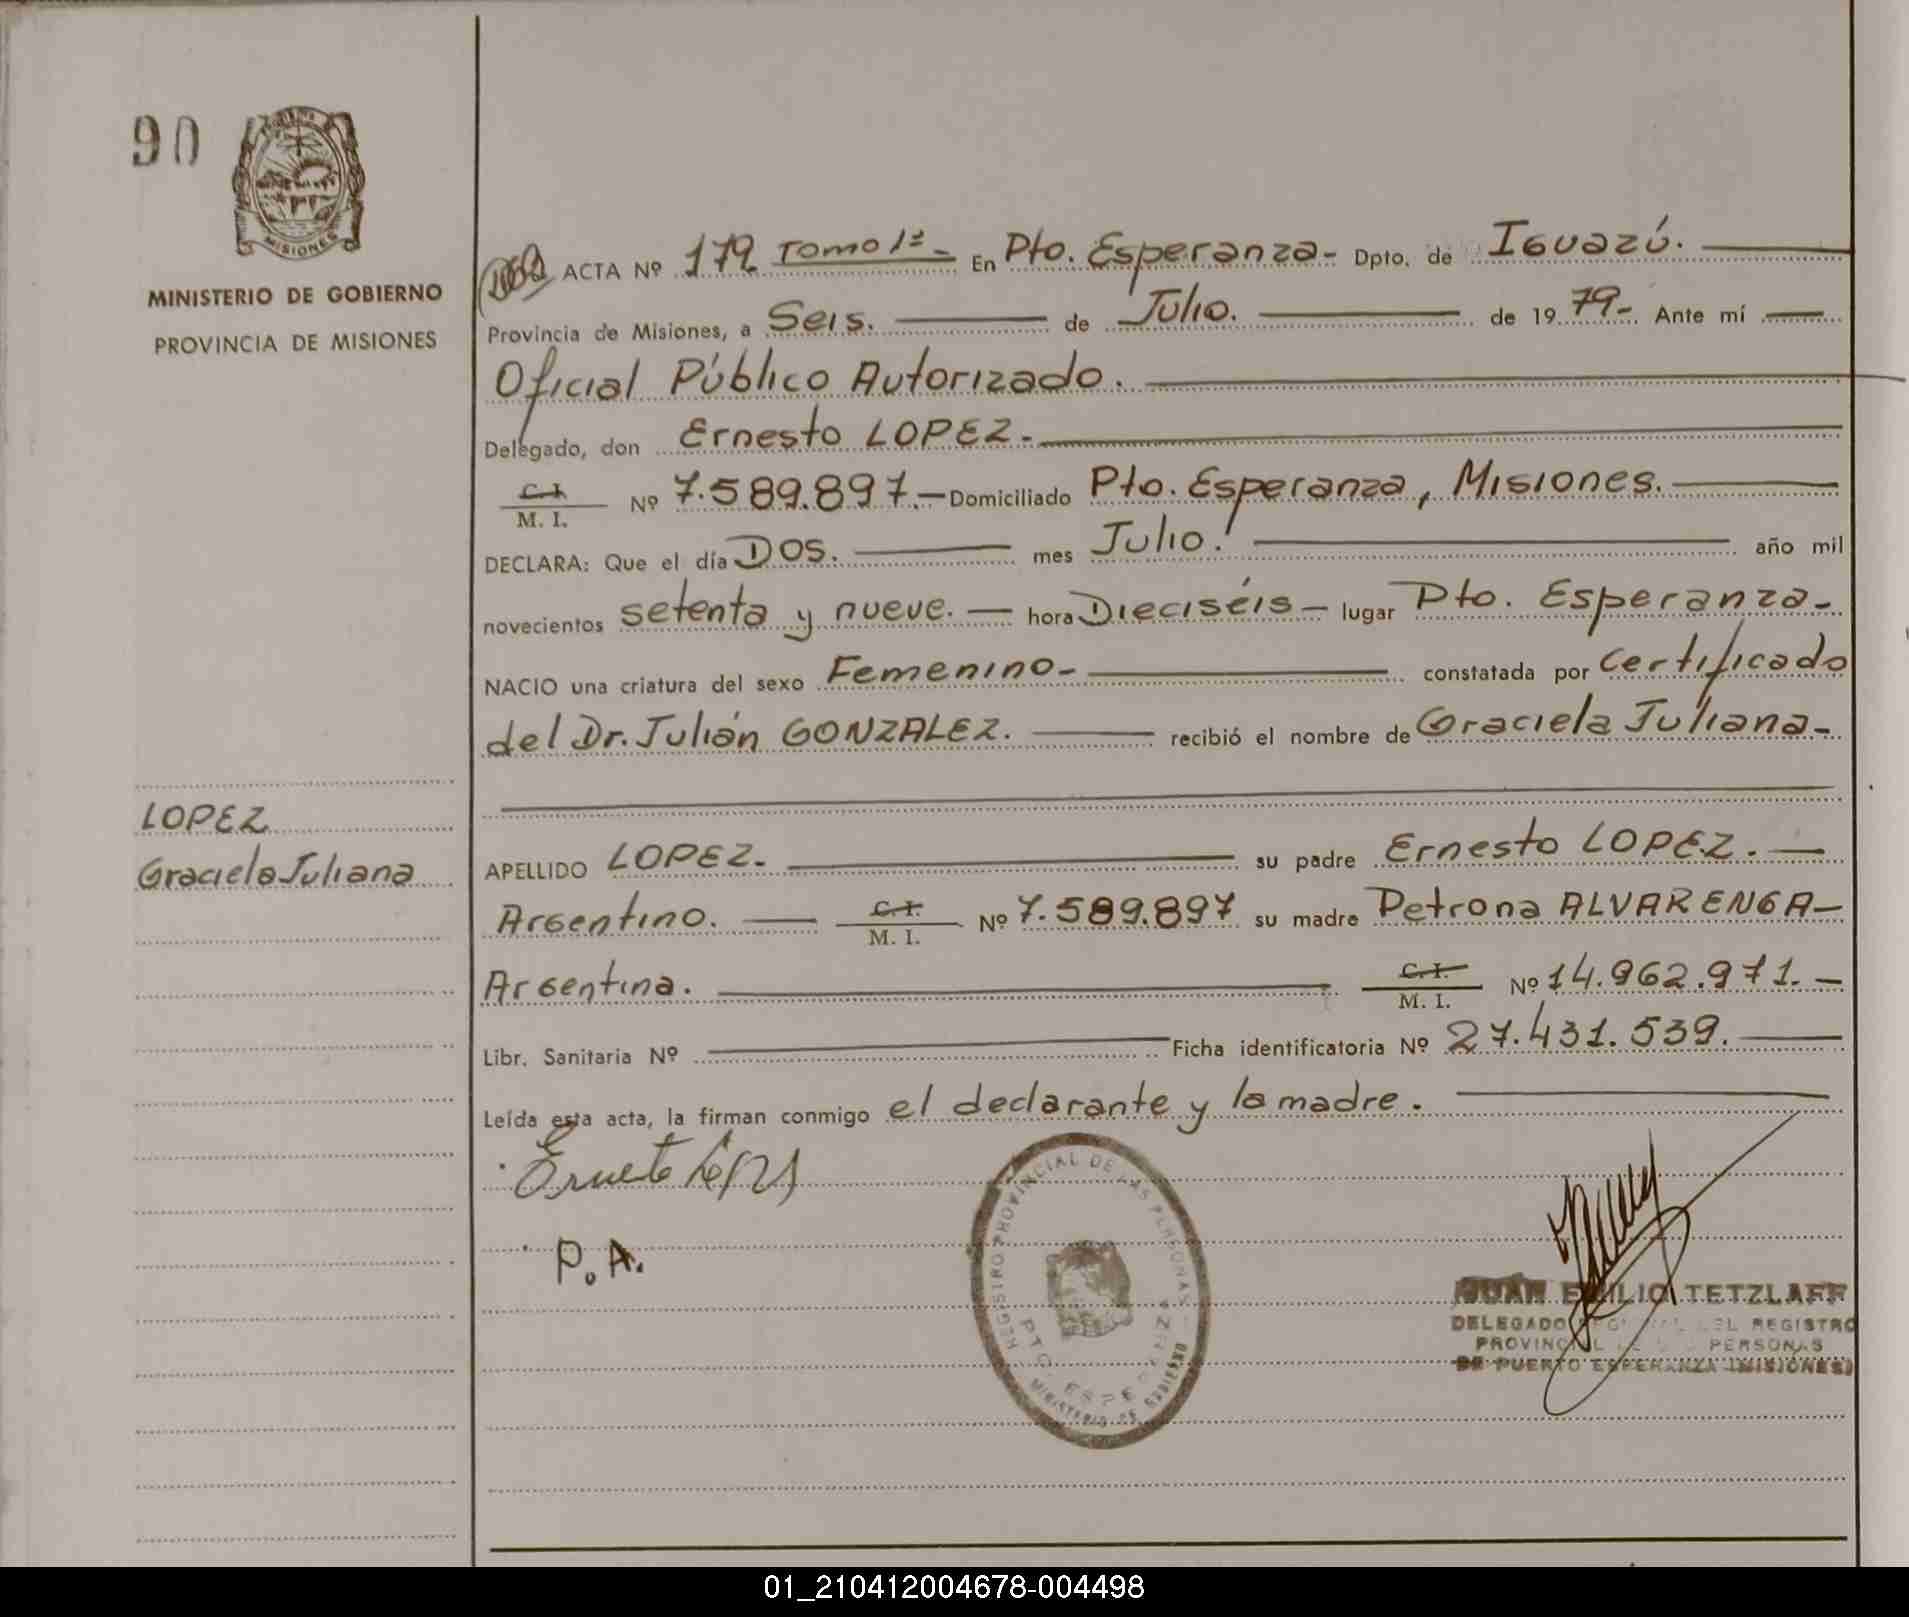 90
MISIONES
MINISTERIO DE GOBIERNO
PROVINCIA DE MISIONES
ACTA Nº 179 Tomo 1º - En Pto. Esperanza - Dpto. de Iguazú.
Provincia de Misiones, a Seis. de Julio. de 1979- Ante mí
Oficial Público Autorizado.
Delegado, don Ernesto LOPEZ.-
C. I. / M. I. Nº 7.589.897.- Domiciliado Pto. Esperanza, Misiones.
DECLARA: Que el día Dos. mes Julio. año mil
novecientos setenta y nueve. - hora Dieciséis - lugar Pto. Esperanza-
NACIO una criatura del sexo Femenino- constatada por Certificado
del Dr. Julián GONZALEZ. recibió el nombre de Graciela Juliana-
LOPEZ
Graciela Juliana
APELLIDO LOPEZ- su padre Ernesto LOPEZ.-
Argentino. C. I. / M. I. Nº 7.589.897 su madre Petrona ALVARENGA-
Argentina. C. I. / M. I. Nº 14.962.971.-
Libr. Sanitaria Nº Ficha identificatoria Nº 27.431.539.
Leída esta acta, la firman conmigo el declarante y la madre.
P. A.
REGISTRO PROVINCIAL DE LAS PERSONAS
PTO. ESPERANZA
MINISTERIO DE GOBIERNO
JUAN EMILIO TETZLAFF
DELEGADO DEL REGISTRO
PROVINCIAL PERSONAS
DE PUERTO ESPERANZA (MISIONES)
01_210412004678-004498